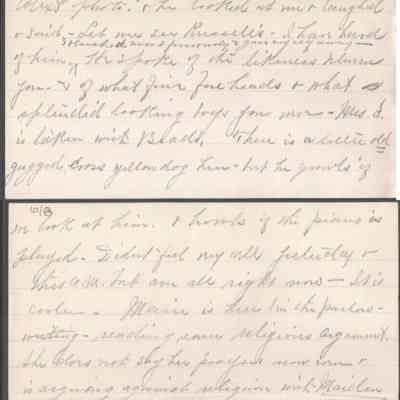 photo. & he looked at me & laughed
& said - Let me see Russell's - I have heard
of him, He spoke of the likeness between
you - & of what fine foreheads & what
splendid looking boys you were - Mrs. S.
is taken with Beads. There is a little old
yellow dog here - but he growls if
we look at him. & howls if the piano is
played. Didn't feel very well yesterday &
this A.M. but am all right now - It is
cooler - is here in the parlor -
writing - reading some religious argument.
She does not say her prayers now &
is arguing against religion with